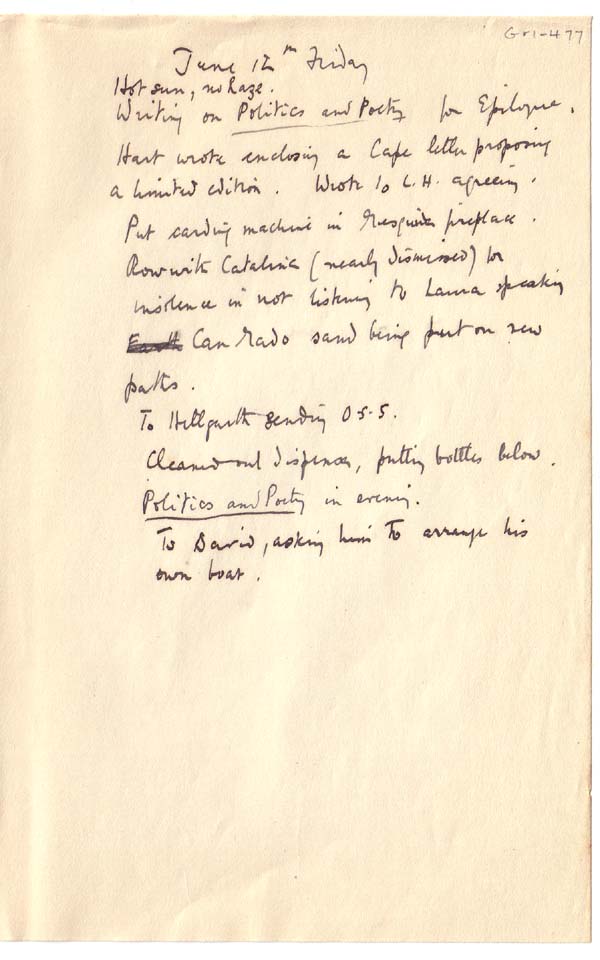 Gr1-477
June 12th Friday
Hot sun, no haze.
Writing on Politics and Poetry for Epilogue.
Hart wrote enclosing a Cape letter proposing
a limited edition. Wrote to L.H. agreeing.
Put carding machine in fireplace.
Row with Catalina (nearly dismissed) for
insolence in not listening to Laura speaking
Earth Can Mado sand being put on new
paths.
To Hillgarth sending O-5-5.
Cleaned out dispensa, putting bottles below.
Politics and Poetry in evening.
To David, asking him to arrange his
own boat.